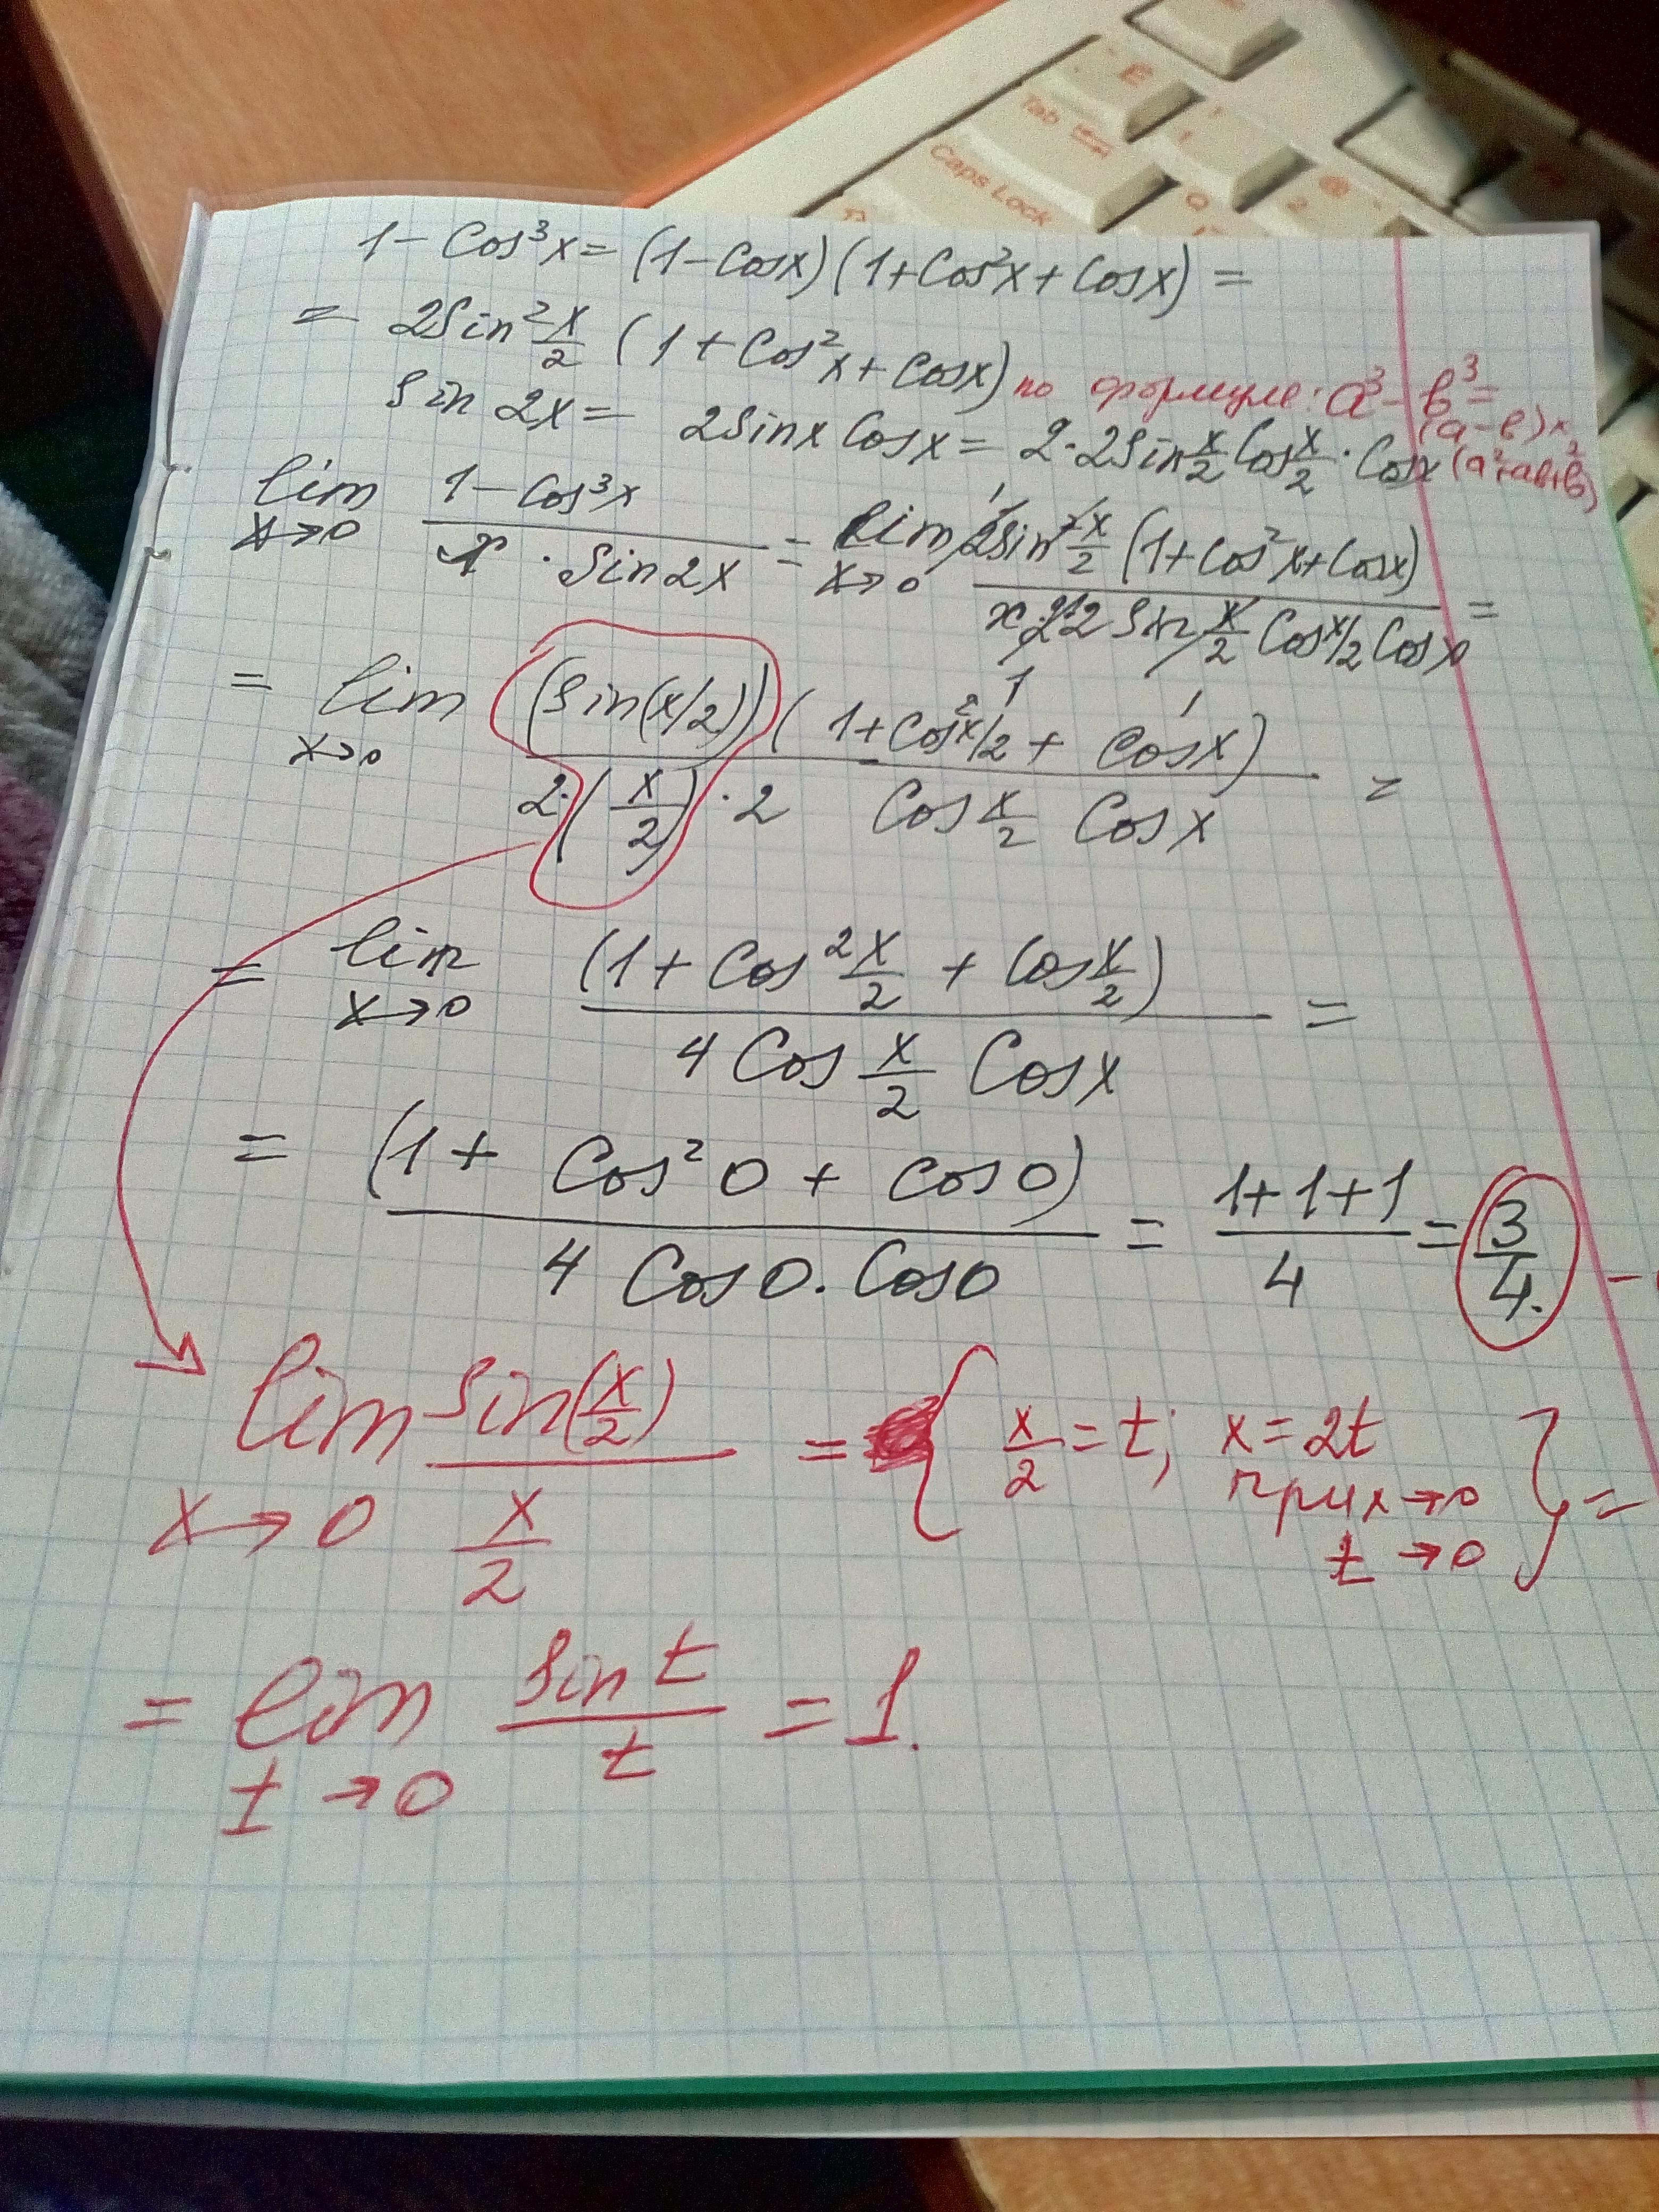 Ё
Tab
1
Caps Lock
Q
@
2
1 - Cos³x = (1-Cosx)(1+Cos²x+Cosx) =
= 2Sin² x/2 (1+Cos²x+Cosx) по формуле: a³-b³=
(a-b)×
(a²+ab+b²)
Sin 2x = 2Sinx Cosx = 2·2Sin x/2 Cos x/2 · Cosx
lim x→0 (1-Cos³x)/(x · Sin2x) = lim x→0 (2Sin² x/2 (1+Cos²x+Cosx))/(x·2·2 Sin x/2 Cos x/2 Cosx) =
= lim x→0 ((Sin(x/2))(1+Cos²x/2 + Cosx))/(2·(x/2)·2 Cos x/2 Cosx) =
= lim x→0 (1+Cos² x/2 + Cos x/2)/(4 Cos x/2 Cosx) =
= (1+ Cos² 0 + Cos 0)/(4 Cos0. Cos0) = (1+1+1)/4 = 3/4.
lim x→0 Sin(x/2)/(x/2) = { x/2 = t; x=2t
при x→0
t→0 } =
= lim t→0 Sin t/t = 1.